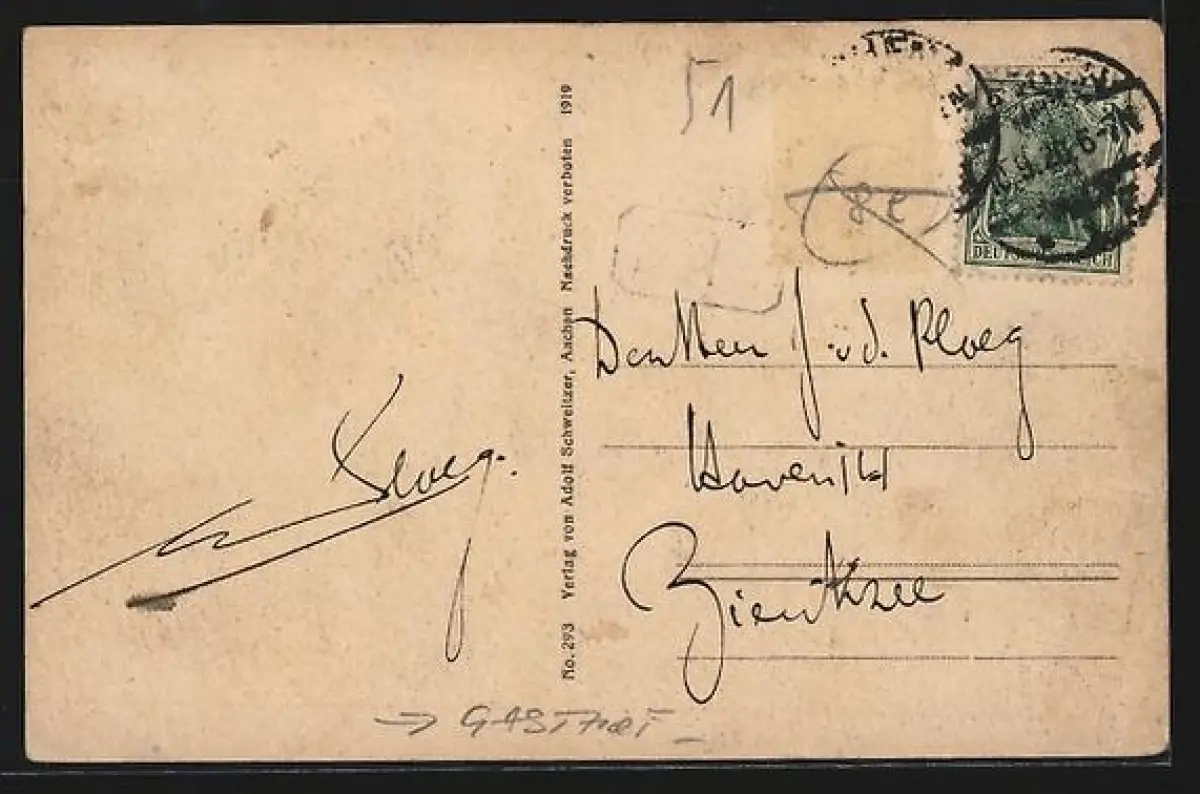 51
DEUTSCHES REICH
No. 293 Verlag von Adolf Schweitzer, Aachen Nachdruck verboten 1919
Den Heer J. v. d. Ploeg
Havenstr
Zierikzee
Ploeg.
→ GASTHOF